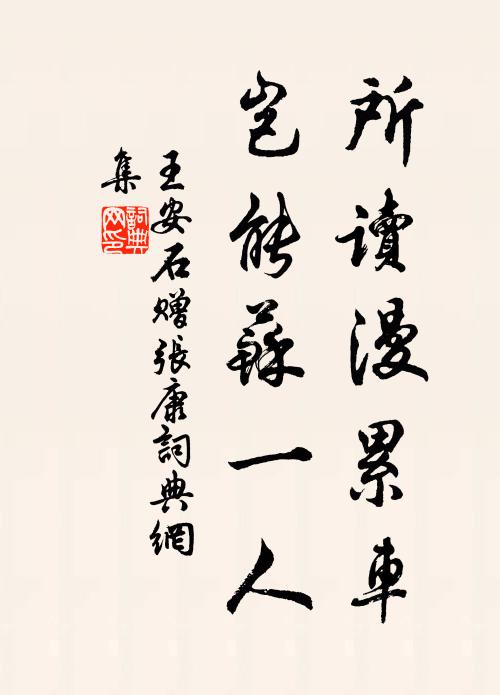 所讀漫累車
豈能蘇一人
王安石贈張康詞典網
集
詞典網印